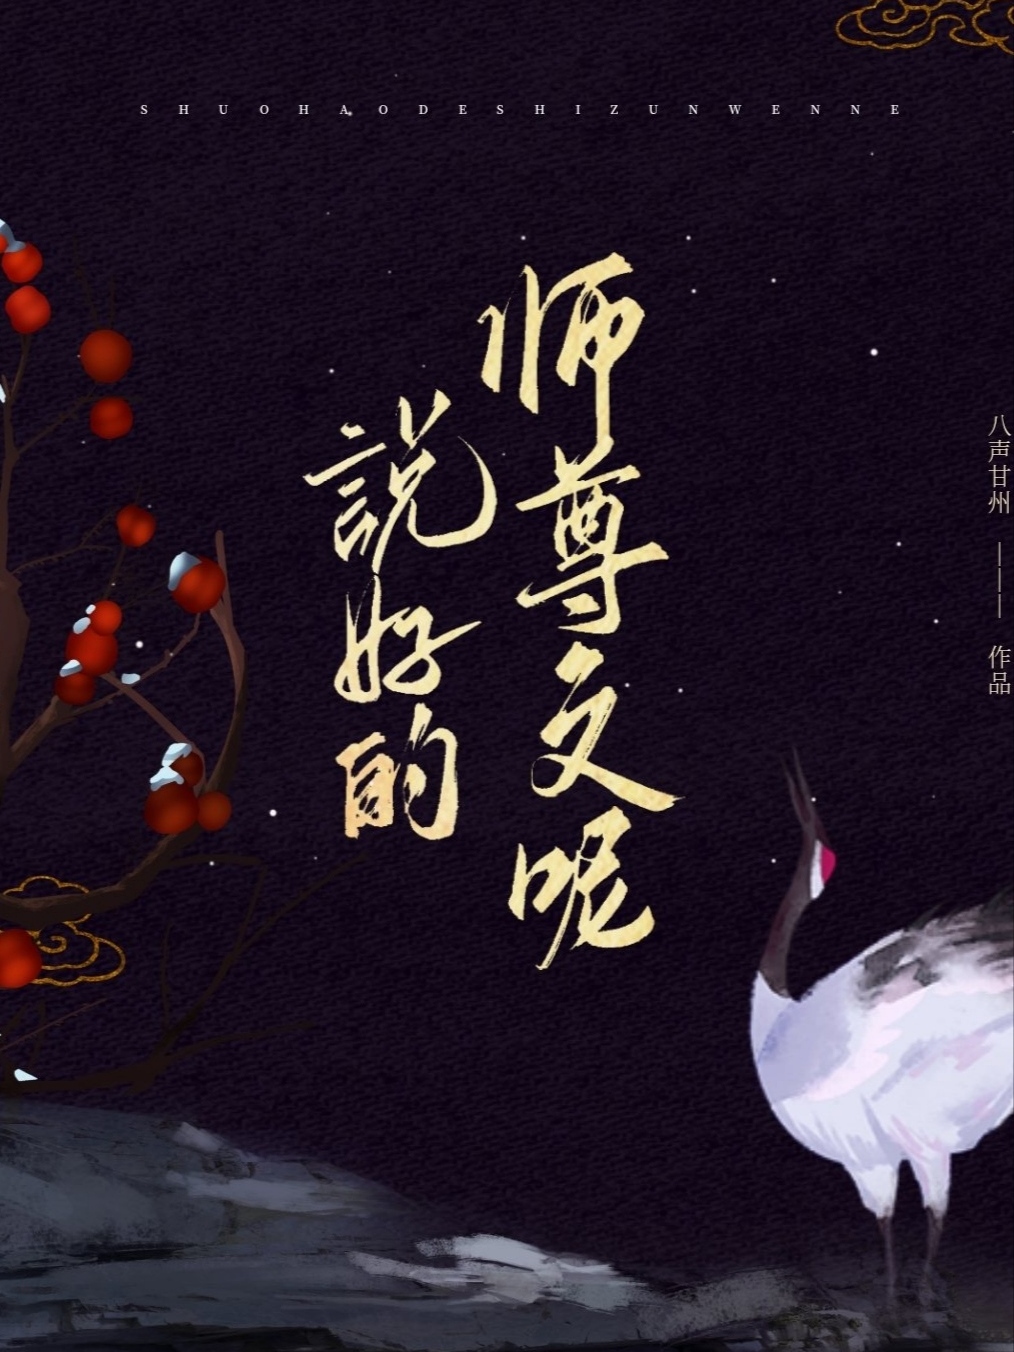 SHUOHAODESHIZUNWENNE
說好的
师尊文呢
八声甘州 ——— 作品